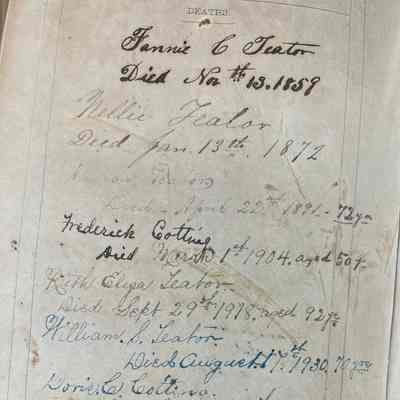 DEATHS.
Fannie C Teator
Died Nov th 13. 1859
Nellie Teator
Died Jan. 13th. 1872
Died April 22nd 1891. 72 yrs
Frederick Cotting
Died March 1st 1904. aged 50 y.
Ruth Eliza Teator
Died Sept 29th 1918. aged 92 yrs
William S. Teator
Died August 1930, 70 yrs
Doris C. Cotting.